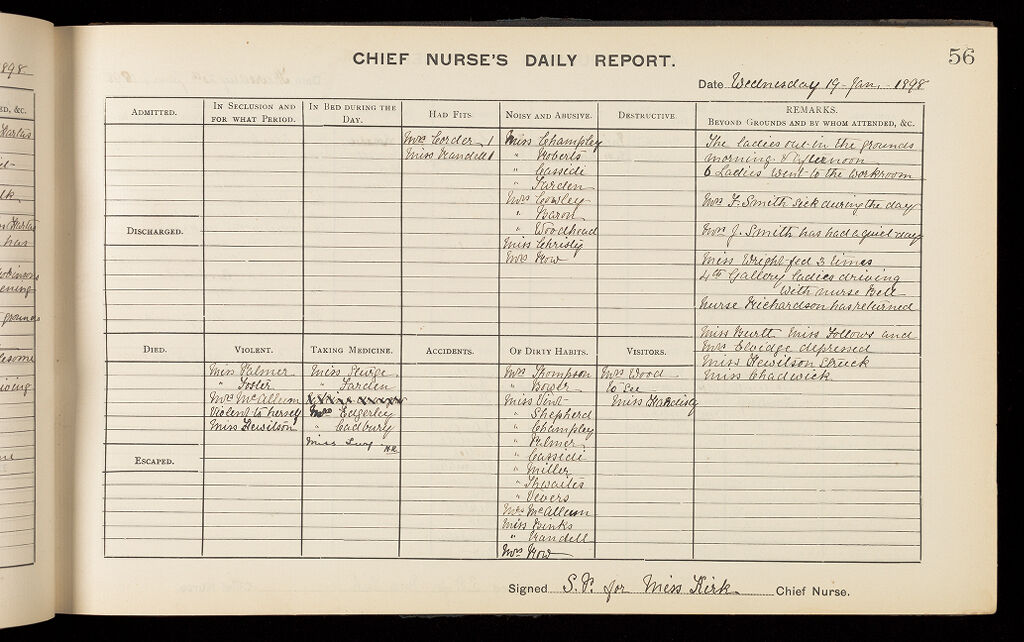 1898
CHIEF NURSE'S DAILY REPORT.
56
Date Wednesday 19 Jan. 1898
ADMITTED.
IN SECLUSION AND FOR WHAT PERIOD.
IN BED DURING THE DAY.
HAD FITS.
Mrs Corder 1
Miss Randell 1
NOISY AND ABUSIVE.
Miss Champley
" Roberts
" Cassidi
" Sarden
Mrs Cowley
" Baron
" Woodhead
Miss Christy
Mrs Row
DESTRUCTIVE.
REMARKS.
BEYOND GROUNDS AND BY WHOM ATTENDED, &C.
The ladies out in the grounds
morning & Afternoon
6 Ladies went to the workroom
Mrs F. Smith sick during the day
Mrs J. Smith has had a quiet day
Miss Wright fed 3 times
4th Gallery ladies driving
with nurse Bell
Nurse Richardson has returned
Miss Burtt Miss Follows and
Mrs Elvidge depressed
Miss Hewitson struck
Miss Chadwick.
DISCHARGED.
DIED.
VIOLENT.
Miss Palmer
" Foster
Mrs McAllum
Violent to herself
Miss Hewitson
TAKING MEDICINE.
Miss Sturge
" Sarden
Mrs Edgerley
" Cadbury
Miss
ACCIDENTS.
OF DIRTY HABITS.
Mrs Thompson
" Bower
Miss Vint
" Shepherd
" Champley
" Palmer
" Cassidi
" Miller
" Thwaites
" Vevers
Mrs McAllum
Miss Binks
" Randell
Mrs Row
VISITORS.
Mrs Wood
to see
Miss Hardisty
ESCAPED.
Signed S. P. for Miss Kirk Chief Nurse.